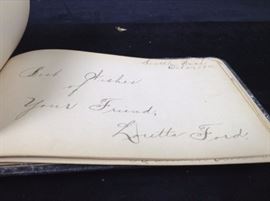 Best Wishes
of
Your Friend,
Loretta Ford.